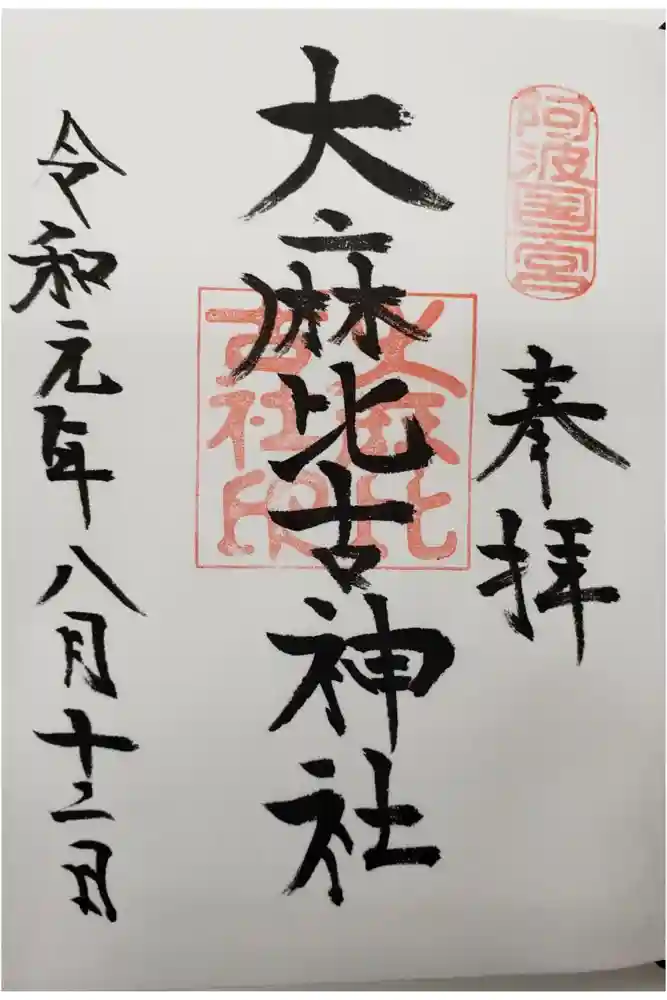 阿波国一宮
奉拝
大麻比古神社
大麻比古社印
令和元年八月十二日